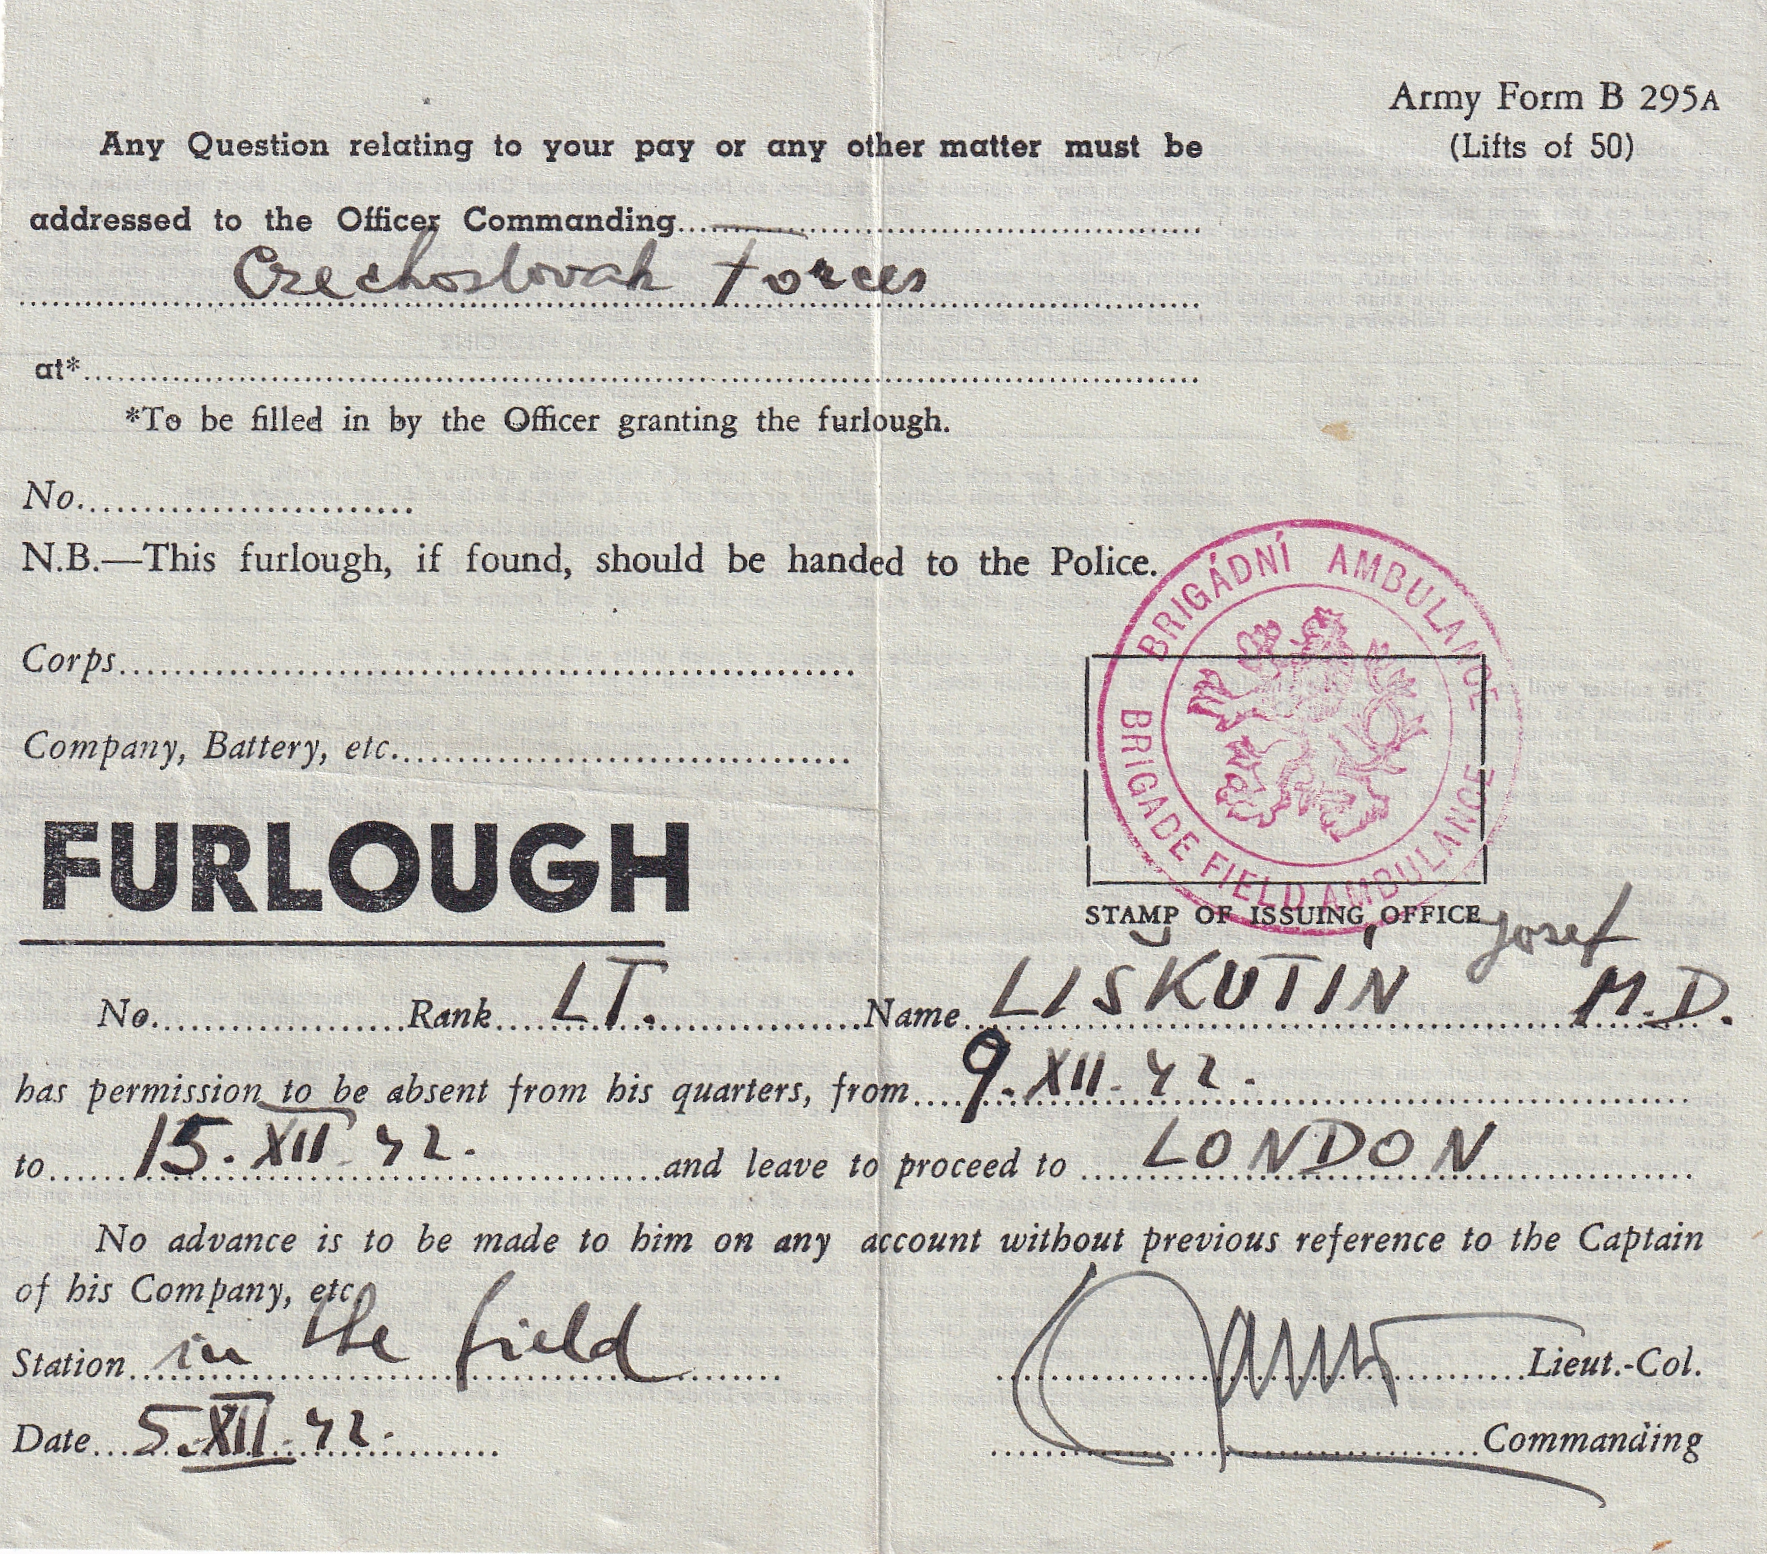 Army Form B 295A
(Lifts of 50)
Any Question relating to your pay or any other matter must be
addressed to the Officer Commanding
Czechoslovak Forces
at*
*To be filled in by the Officer granting the furlough.
No.
N.B.—This furlough, if found, should be handed to the Police.
BRIGÁDNÍ AMBULANCE
BRIGADE FIELD AMBULANCE
Corps
Company, Battery, etc.
FURLOUGH
STAMP OF ISSUING OFFICE
Josef
No. Rank LT. Name LIŠKUTÍN M.D.
has permission to be absent from his quarters, from 9. XII. 42.
to 15. XII. 42. and leave to proceed to LONDON
No advance is to be made to him on any account without previous reference to the Captain
of his Company, etc.
Station in the field Lieut.-Col.
Date 5. XII. 42. Commanding